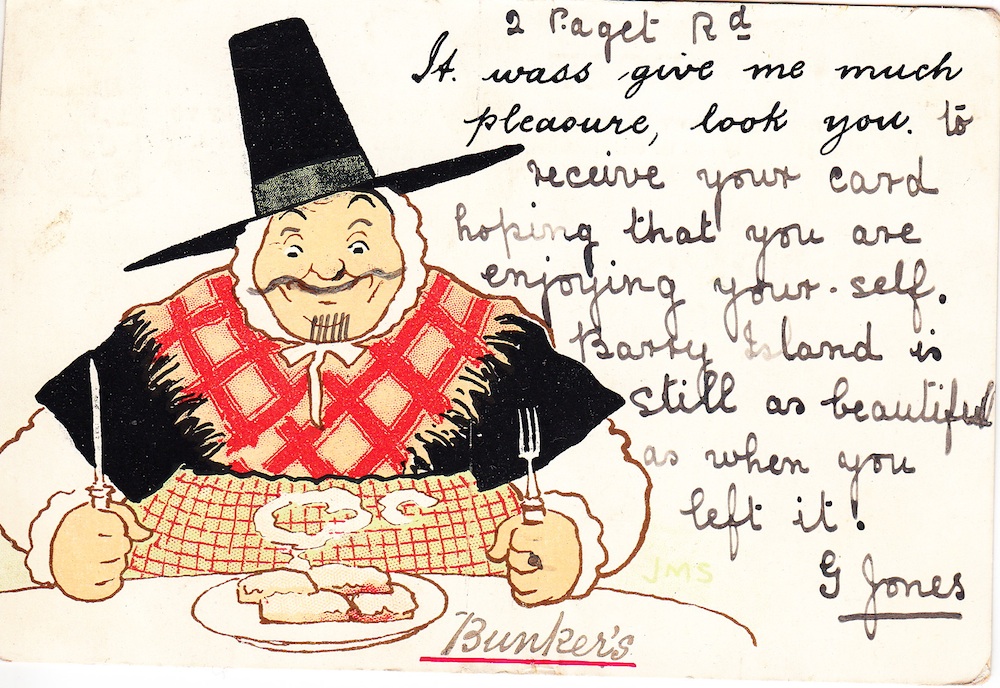 2 Paget Rd
It. wass give me much
pleasure, look you. to
receive your card
hoping that you are
enjoying your-self.
Barry Island is
still as beautiful
as when you
left it!
G Jones
JMS
Bunker's